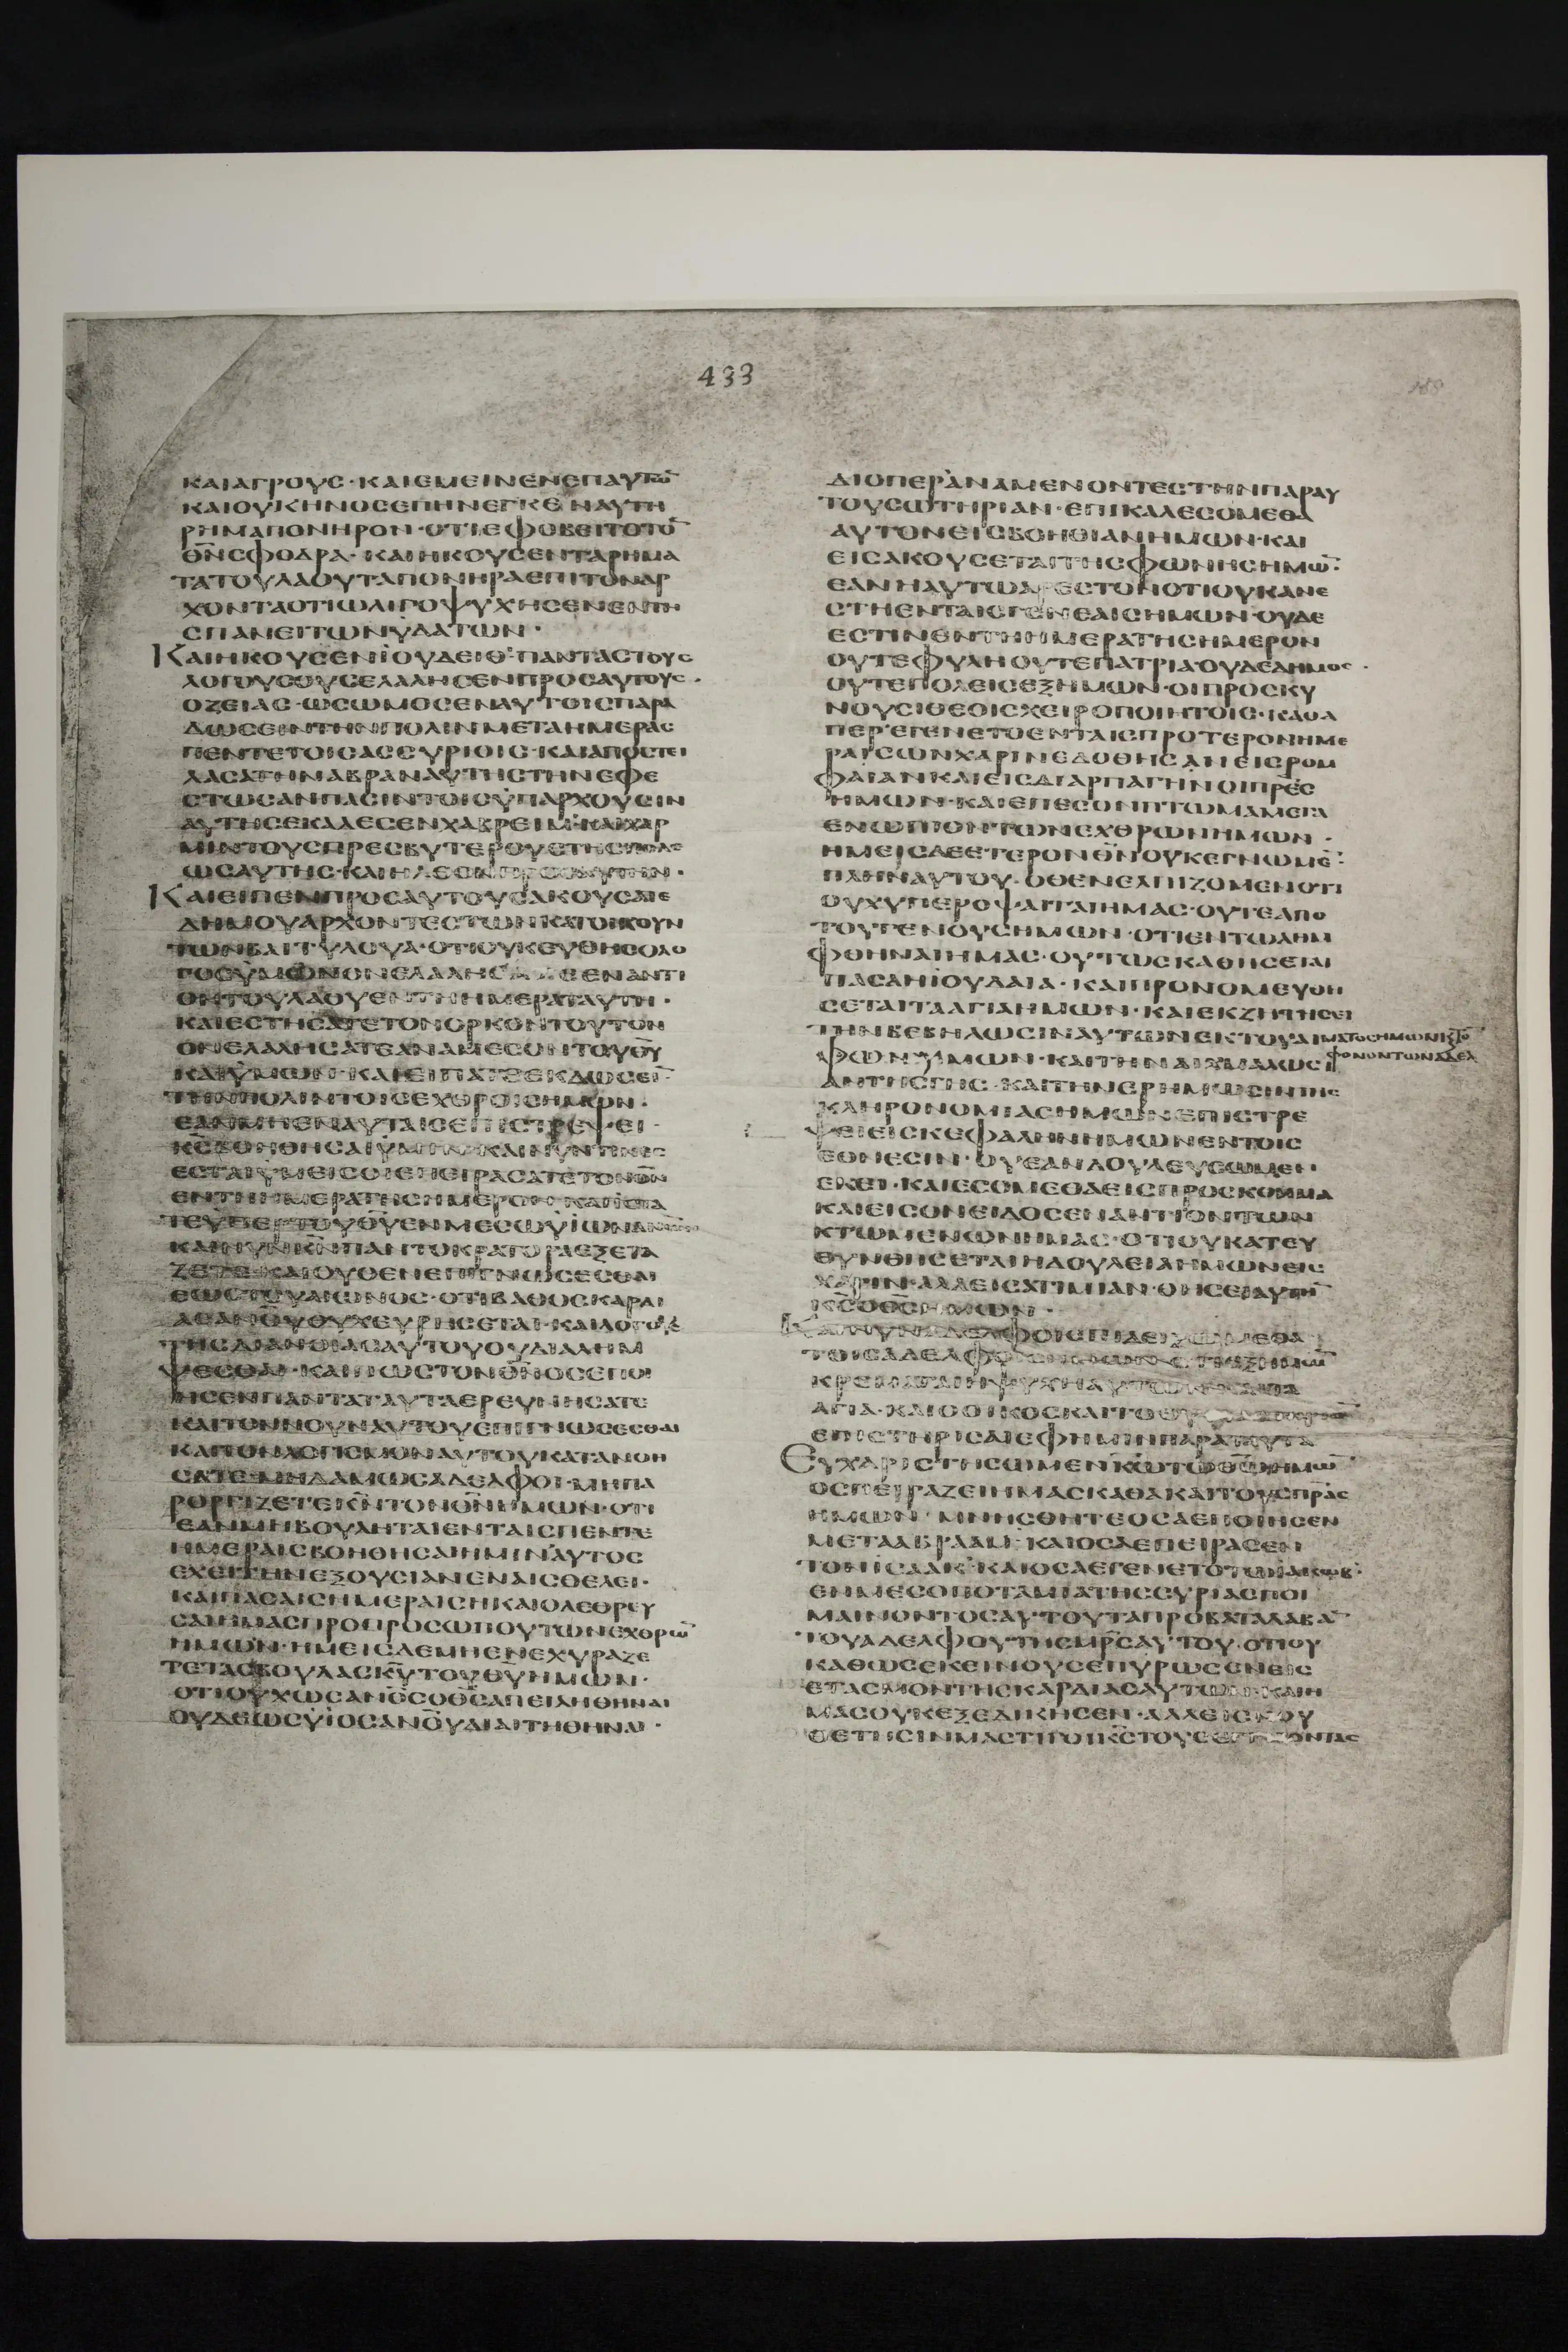 433
ΚΑΙΑΓΡΟΥΣ·ΚΑΙΕΜΕΙΝΕΝΕΠΑΥΤΩ̅
ΚΑΙΟΥΚΗΝΟΣΕΠΗΝΕΓΚΕΝΑΥΤΗ
ΡΗΜΑΠΟΝΗΡΟΝ·ΟΤΙΕΦΟΒΕΙΤΟΤΟ̅
Θ̅Ν̅ΣΦΟΔΡΑ·ΚΑΙΗΚΟΥΣΕΝΤΑΡΗΜΑ
ΤΑΤΟΥΛΑΟΥΤΑΠΟΝΗΡΑΕΠΙΤΟΝΑΡ
ΧΟΝΤΑΟΤΙΩΛΙΓΟΨΥΧΗΣΕΝΕΝΤΗ
ΣΠΑΝΕΙΤΩΝΫΔΑΤΩΝ·
ΚΑΙΗΚΟΥΣΕΝΪΟΥΔΕΙΘ·ΠΑΝΤΑΣΤΟΥΣ
ΛΟΓΟΥΣΟΥΣΕΛΑΛΗΣΕΝΠΡΟΣΑΥΤΟΥΣ·
ΟΖΕΙΑΣ·ΩΣΩΜΟΣΕΝΑΥΤΟΙΣΠΑΡΑ
ΔΩΣΕΙΝΤΗΝΠΟΛΙΝΜΕΤΑΗΜΕΡΑΣ
ΠΕΝΤΕΤΟΙΣΑΣΣΥΡΙΟΙΣ·ΚΑΙΑΠΟΣΤΕΙ
ΛΑΣΑΤΗΝΑΒΡΑΝΑΥΤΗΣΤΗΝΕΦΕ
ΣΤΩΣΑΝΠΑΣΙΝΤΟΙΣΫΠΑΡΧΟΥΣΙΝ
ΑΥΤΗΣΕΚΑΛΕΣΕΝΧΑΒΡΕΙΜ·ΚΑΙΧΑΡ
ΜΙΝΤΟΥΣΠΡΕΣΒΥΤΕΡΟΥΣΤΗΣΠΟΛΕ
ΩΣΑΥΤΗΣ·ΚΑΙΗΛΘΟΝΠΡΟΣΑΥΤΗΝ·
ΚΑΙΕΙΠΕΝΠΡΟΣΑΥΤΟΥΣΑΚΟΥΣΑΤΕ
ΔΗΜΟΥΑΡΧΟΝΤΕΣΤΩΝΚΑΤΟΙΚΟΥΝ
ΤΩΝΒΑΙΤΥΛΟΥΑ·ΟΤΙΟΥΚΕΥΘΗΣΟΛΟ
ΓΟΣΫΜΩΝΟΝΕΛΑΛΗΣΑΤΕΕΝΑΝΤΙ
ΟΝΤΟΥΛΑΟΥΕΝΤΗΗΜΕΡΑΤΑΥΤΗ·
ΚΑΙΕΣΤΗΣΑΤΕΤΟΝΟΡΚΟΝΤΟΥΤΟΝ
ΟΝΕΛΑΛΗΣΑΤΕΑΝΑΜΕΣΟΝΤΟΥΘ̅Υ̅
ΚΑΙΫΜΩΝ·ΚΑΙΕΙΠΑΤΕΕΚΔΩΣΕΙ̅
ΤΗΝΠΟΛΙΝΤΟΙΣΕΧΘΡΟΙΣΗΜΩΝ·
ΕΑΝΜΗΕΝΑΥΤΑΙΣΕΠΙΣΤΡΕΨΕΙ
Κ̅Σ̅ΒΟΗΘΗΣΑΙΫΜΙΝ·ΚΑΙΝΥΝΤΙΝΕΣ
ΕΣΤΑΙΫΜΕΙΣΟΙΕΠΕΙΡΑΣΑΤΕΤΟΝΘ̅Ν̅
ΕΝΤΗΗΜΕΡΑΤΗΣΗΜΕΡΟΝ·ΚΑΙΪΣΤΑ
ΤΕΫΠΕΡΤΟΥΘ̅Υ̅ΕΝΜΕΣΩΫΪΩΝ
ΚΑΙΝΥΝΚ̅Ν̅ΠΑΝΤΟΚΡΑΤΟΡΑΕΞΕΤΑ
ΖΕΤΕ·ΚΑΙΟΥΘΕΝΕΠΙΓΝΩΣΕΣΘΑΙ
ΕΩΣΤΟΥΑΙΩΝΟΣ·ΟΤΙΒΑΘΟΣΚΑΡΔΙ
ΑΣΑΝΟ̅Υ̅ΟΥΧΕΥΡΗΣΕΤΑΙ·ΚΑΙΛΟΓΟΥΣ
ΤΗΣΔΙΑΝΟΙΑΣΑΥΤΟΥΟΥΔΙΑΛΗΜ
ΨΕΣΘΑΙ·ΚΑΙΠΩΣΤΟΝΘ̅Ν̅ΟΣΕΠΟΙ
ΗΣΕΝΠΑΝΤΑΤΑΥΤΑΕΡΕΥΝΗΣΑΤΕ
ΚΑΙΤΟΝΝΟΥΝΑΥΤΟΥΕΠΙΓΝΩΣΕΣΘΑΙ
ΚΑΙΤΟΝΛΟΓΙΣΜΟΝΑΥΤΟΥΚΑΤΑΝΟΗ
ΣΑΤΕ·ΜΗΔΑΜΩΣΑΔΕΛΦΟΙ·ΜΗΠΑ
ΡΟΡΓΙΖΕΤΕΚ̅Ν̅ΤΟΝΘ̅Ν̅ΗΜΩΝ·ΟΤΙ
ΕΑΝΜΗΒΟΥΛΗΤΑΙΕΝΤΑΙΣΠΕΝΤΕ
ΗΜΕΡΑΙΣΒΟΗΘΗΣΑΙΗΜΙΝΑΥΤΟΣ
ΕΧΕΙΤΗΝΕΞΟΥΣΙΑΝΕΝΑΙΣΘΕΛΕΙ·
ΚΑΙΠΑΣΑΙΣΗΜΕΡΑΙΣΗΚΑΙΟΛΕΘΡΕΥ
ΣΑΙΗΜΑΣΠΡΟΠΡΟΣΩΠΟΥΤΩΝΕΧΘΡΩ̅
ΗΜΩΝ·ΗΜΕΙΣΔΕΜΗΕΝΕΧΥΡΑΖΕ
ΤΕΤΑΣΒΟΥΛΑΣΚ̅Υ̅ΤΟΥΘ̅Υ̅ΗΜΩΝ·
ΟΤΙΟΥΧΩΣΑΝ̅Ο̅Σ̅ΟΘ̅Σ̅ΑΠΕΙΛΗΘΗΝΑΙ
ΟΥΔΕΩΣΫΪΟΣΑΝΟ̅Υ̅ΔΙΑΙΤΗΘΗΝΑΙ·
ΔΙΟΠΕΡΑΝΑΜΕΝΟΝΤΕΣΤΗΝΠΑΡΑΥ
ΤΟΥΣΩΤΗΡΙΑΝ·ΕΠΙΚΑΛΕΣΟΜΕΘΑ
ΑΥΤΟΝΕΙΣΒΟΗΘΙΑΝΗΜΩΝ·ΚΑΙ
ΕΙΣΑΚΟΥΣΕΤΑΙΤΗΣΦΩΝΗΣΗΜΩ̅·
ΕΑΝΗΑΥΤΩΑΡΕΣΤΟΝΟΤΙΟΥΚΑΝΕ
ΣΤΗΕΝΤΑΙΣΓΕΝΕΑΙΣΗΜΩΝ·ΟΥΔΕ
ΕΣΤΙΝΕΝΤΗΗΜΕΡΑΤΗΣΗΜΕΡΟΝ
ΟΥΤΕΦΥΛΗΟΥΤΕΠΑΤΡΙΑΟΥΔΕΔΗΜΟΣ·
ΟΥΤΕΠΟΛΕΙΣΕΞΗΜΩΝ·ΟΙΠΡΟΣΚΥ
ΝΟΥΣΙΘΕΟΙΣΧΕΙΡΟΠΟΙΗΤΟΙΣ·ΚΑΘΑ
ΠΕΡΕΓΕΝΕΤΟΕΝΤΑΙΣΠΡΟΤΕΡΟΝΗΜΕ
ΡΑΙΣΩΝΧΑΡΙΝΕΔΟΘΗΣΑΝΕΙΣΡΟΜ
ΦΑΙΑΝΚΑΙΕΙΣΔΙΑΡΠΑΓΗΝΟΙΠΡ̅Ε̅Σ̅
ΗΜΩΝ·ΚΑΙΕΠΕΣΟΝΠΤΩΜΑΜΕΓΑ
ΕΝΩΠΙΟΝΤΩΝΕΧΘΡΩΝΗΜΩΝ·
ΗΜΕΙΣΔΕΕΤΕΡΟΝΘ̅Ν̅ΟΥΚΕΓΝΩΜΕ̅·
ΠΛΗΝΑΥΤΟΥ·ΟΘΕΝΕΛΠΙΖΟΜΕΝΟΤΙ
ΟΥΧΥΠΕΡΟΨΑΙΤΑΙΗΜΑΣ·ΟΥΤΕΑΠΟ
ΤΟΥΓΕΝΟΥΣΗΜΩΝ·ΟΤΙΕΝΤΩΛΗΜ
ΦΘΗΝΑΙΗΜΑΣ·ΟΥΤΩΣΚΑΘΗΣΕΤΑΙ
ΠΑΣΑΗΪΟΥΔΑΙΑ·ΚΑΙΠΡΟΝΟΜΕΥΘΗ
ΣΕΤΑΙΤΑΑΓΙΑΗΜΩΝ·ΚΑΙΕΚΖΗΤΗΣΕΙ
ΤΗΝΒΕΒΗΛΩΣΙΝΑΥΤΩΝΕΚΤΟΥΑΙΜΑΤΟΣΗΜΩΝΚ̅ΤΟ̅
ΦΟΝΟΝΤΩΝΑΔΕΛ
ΦΩΝΥΜΩΝ·ΚΑΙΤΗΝΑΙΧΜΑΛΩΣΙ
ΑΝΤΗΣΓΗΣ·ΚΑΙΤΗΝΕΡΗΜΩΣΙΝΤΗΣ
ΚΛΗΡΟΝΟΜΙΑΣΗΜΩΝΕΠΙΣΤΡΕ
ΨΕΙΕΙΣΚΕΦΑΛΗΝΗΜΩΝΕΝΤΟΙΣ
ΕΘΝΕΣΙΝ·ΟΥΕΑΝΔΟΥΛΕΥΣΩΜΕΝ
ΕΚΕΙ·ΚΑΙΕΣΟΜΕΘΑΕΙΣΠΡΟΣΚΟΜΜΑ
ΚΑΙΕΙΣΟΝΕΙΔΟΣΕΝΑΝΤΙΟΝΤΩΝ
ΚΤΩΜΕΝΩΝΗΜΑΣ·ΟΤΙΟΥΚΑΤΕΥ
ΘΥΝΘΗΣΕΤΑΙΗΔΟΥΛΕΙΑΗΜΩΝΕΙΣ
ΧΑΡΙΝ·ΑΛΛΕΙΣΑΤΙΜΙΑΝ·ΘΗΣΕΙΑΥΤΗ̅
Κ̅Σ̅ΟΘ̅Σ̅ΗΜΩΝ·
ΚΑΙΝΥΝΑΔΕΛΦΟΙΕΠΙΔΕΙΞΩΜΕΘΑ
ΤΟΙΣΑΔΕΛΦΟΙΣΗΜΩΝΟΤΙΕΞΗΜΩ̅
ΚΡΕΜΑΤΑΙΗΨΥΧΗΑΥΤΩΝΚΑΙΤΑ
ΑΓΙΑ·ΚΑΙΟΟΙΚΟΣΚΑΙΤΟΘΥΣΙΑΣΤΗΡΙΟ̅
ΕΠΙΣΤΗΡΙΣΑΙΕΦΗΜΙΝΠΑΡΑΤΑΥΤΑ
ΕΥΧΑΡΙΣΤΗΣΩΜΕΝΚ̅Ω̅ΤΩΘ̅Ω̅ΗΜΩ̅
ΟΣΠΕΙΡΑΖΕΙΗΜΑΣΚΑΘΑΚΑΙΤΟΥΣΠΡ̅Α̅Σ̅
ΗΜΩΝ·ΜΝΗΣΘΗΤΕΟΣΑΕΠΟΙΗΣΕΝ
ΜΕΤΑΑΒΡΑΑΜ·ΚΑΙΟΣΑΕΠΕΙΡΑΣΕΝ
ΤΟΝΪΣΑΑΚ·ΚΑΙΟΣΑΕΓΕΝΕΤΟΤΩΪΑΚΩΒ·
ΕΝΜΕΣΟΠΟΤΑΜΙΑΤΗΣΣΥΡΙΑΣΠΟΙ
ΜΑΙΝΟΝΤΟΣΑΥΤΟΥΤΑΠΡΟΒΑΤΑΛΑΒΑ̅
ΤΟΥΑΔΕΛΦΟΥΤΗΣΜΡ̅Σ̅ΑΥΤΟΥ·ΟΤΙΟΥ
ΚΑΘΩΣΕΚΕΙΝΟΥΣΕΠΥΡΩΣΕΝΕΙΣ
ΕΤΑΣΜΟΝΤΗΣΚΑΡΔΙΑΣΑΥΤΩΝ·ΚΑΙΗ
ΜΑΣΟΥΚΕΞΕΔΙΚΗΣΕΝ·ΑΛΛΕΙΣΝΟΥ
ΘΕΤΗΣΙΝΜΑΣΤΙΓΟΙΚ̅Σ̅ΤΟΥΣΕΓΓΙΖΟΝΤΑΣ